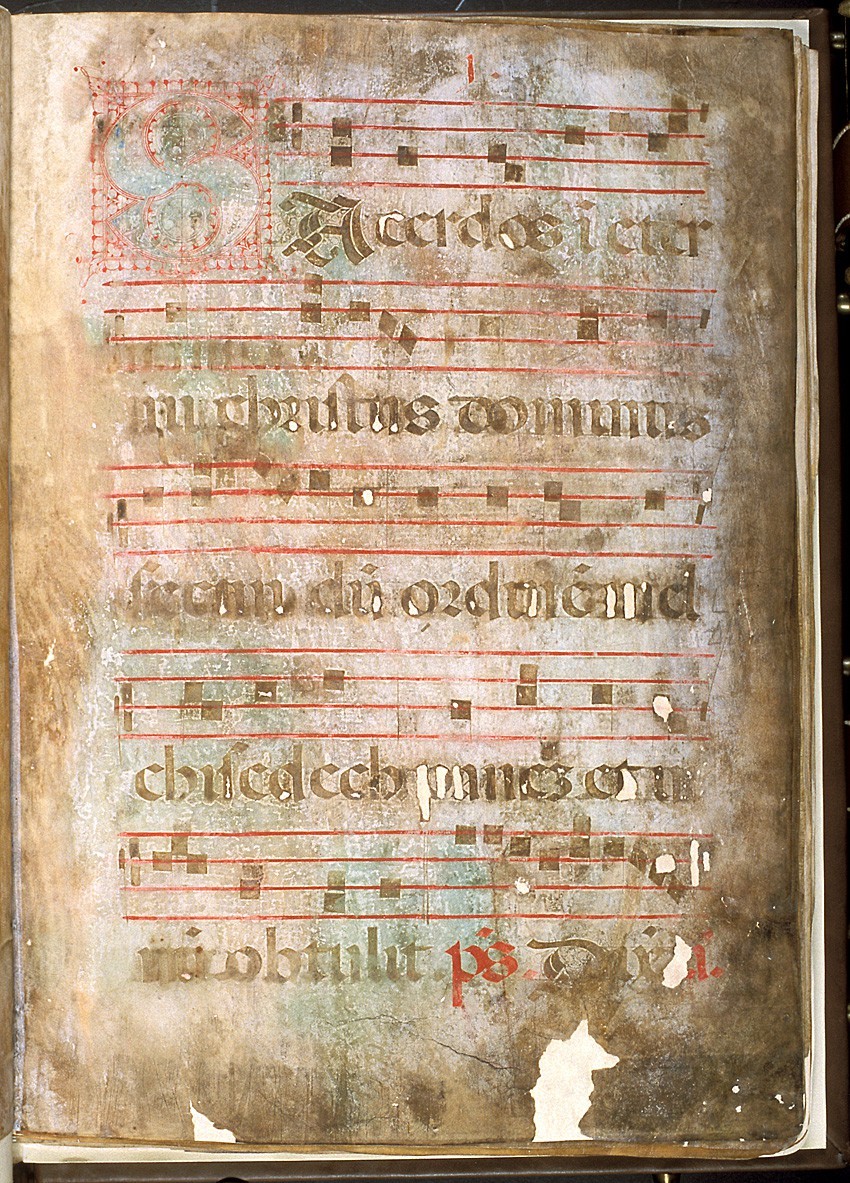 I.
SAcerdos i eter
nū christus dominus
secūn dū ordinē mel
chisedech panes et vi
nū obtulit. ps. Dix̄